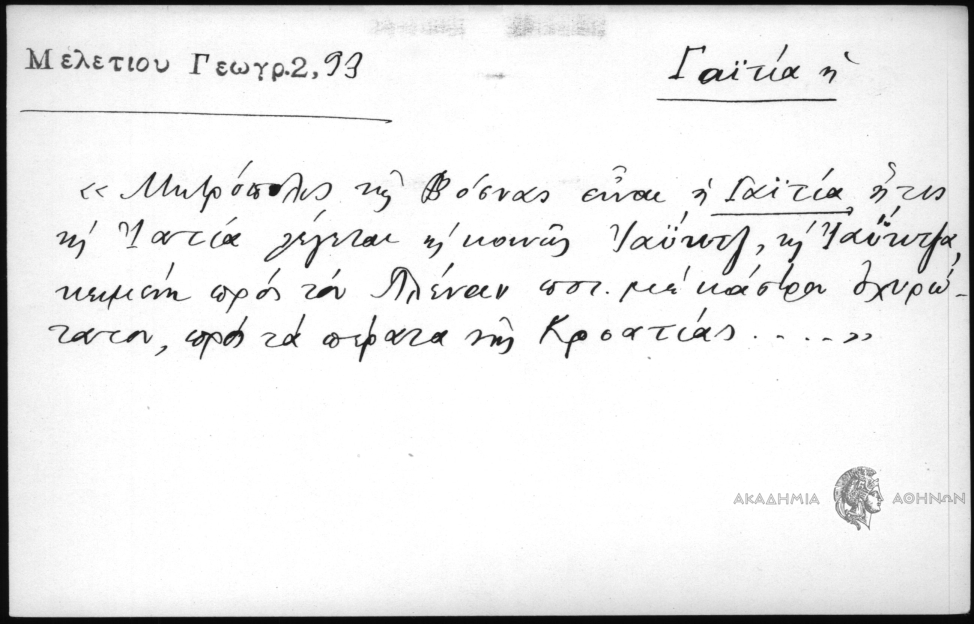 Μελετίου Γεωγρ.2, 93
Γαϊτία ἡ
« Μητρόπολις τῆς Βόσνας εἶναι ἡ Γαϊτία, ἥτις
κὴ Ἰαϊτία λέγεται κὴ κοινῶς Ἰαΰτζ, κὴ Ἰαΰτζα,
κειμένη πρὸς τὸν Πλέναν ποτ. μὲ κάστρον ὀχυρώ-
τατον, πρὸς τὰ πέρατα τῆς Κροατίας ..... »
ΑΚΑΔΗΜΙΑ ΑΘΗΝΩΝ